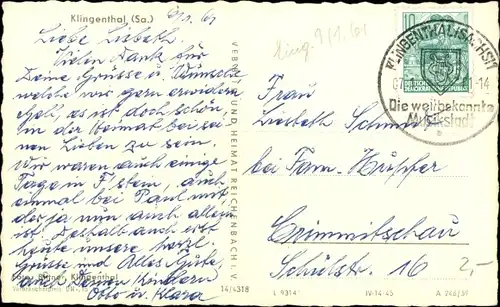 Klingenthal (Sa.)
6/1. 61
Liebe Lisbeth!
Vielen Dank für
Deine Grüsse u. Wünsche
welche wir gern erwidern
es ist doch schön
in der Heimat bei sei-
nen Lieben zu sein.
Wir waren auch einige
Tage in auch
einmal bei Paul mit
der ja nun auch allein
ist. Deshalb auch erst
heute unsere herzl.
Grüsse und Alles Gute,
auch Deinen Kindern
Otto u. Klara
Klingenthal
VEB UND HEIMAT REICHENBACH I. V.
14/4318
9/1. 61
10
DEUTSCHE
DEMOKRATISCHE REPUBLIK
KLINGENTHAL (SACHS)
61-14
Die weltbekannte
Musikstadt
Frau
Lisbeth
bei Fam. Hüpfer
Crimmitschau
Schulstr. 16
2,-
L 9314
IV-14-45
A 246/59